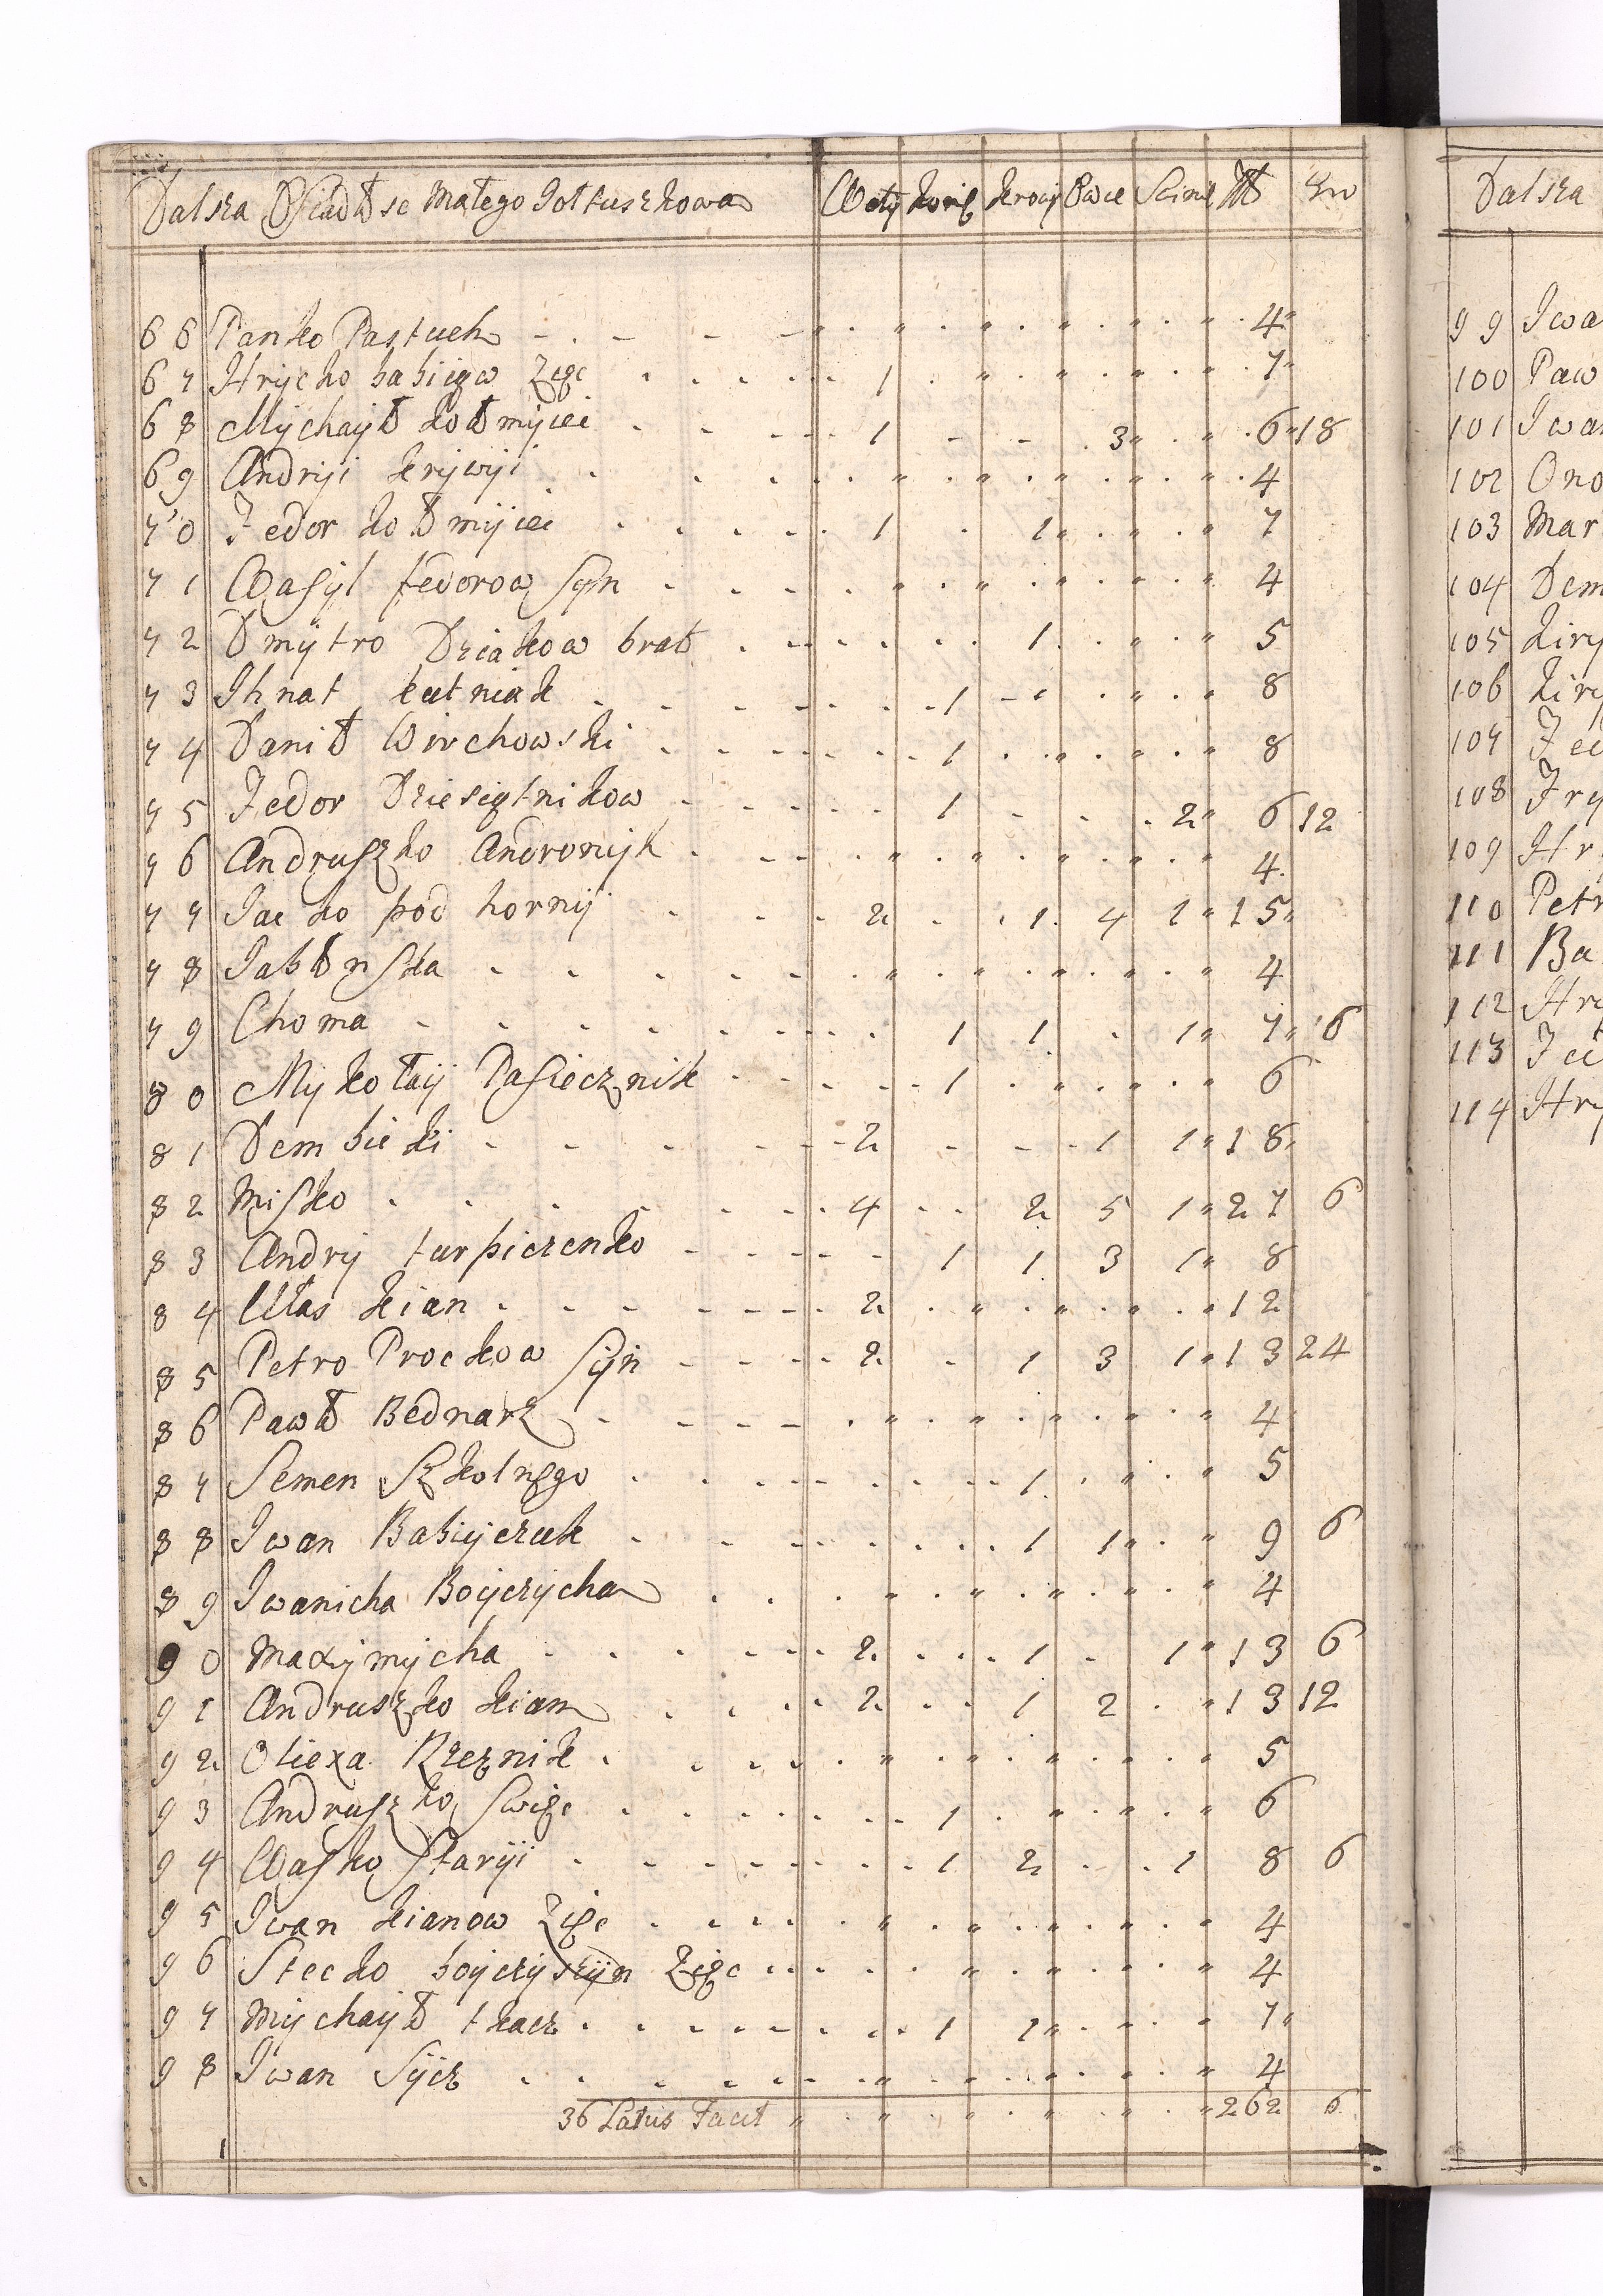 Dalsza Osiadłosc Małego Jołtuszkowa Woły Konie Krowy Owce Swinie zł gr
66 Panko Pastuch 4
67 Hryćko babiego Zięć 1 7
68 Mychayło kołomyiec 1 3 6 18
69 Andriji krywiji 4
70 Fedor kołomyiec 1 1 7
71 Wasyl fedorow Syn 4
72 Dmytro Dziakow brat 1 5
73 Ihnat kutniak 1 1 8
74 Daniło Wirchowski 1 8
75 Fedor Dziesiętnikow 1 2 6 12
76 Andruszko Andronijk 4
77 Jacko podhornij 2 1 4 1 15
78 Jabłonska 4
79 Choma 1 1 1 7 6
80 Mykołaij Pasiecznik 1 6
81 Dembicki 2 1 1 18
82 Misko 4 2 5 1 27 6
83 Andrij turpiczenko 1 1 3 1 8
84 Ułas kian 2 12
85 Petro Prockow Syn 2 1 3 1 13 24
86 Pawło Bednarz 4
87 Semen Szkolnego 1 5
88 Iwan Babijczuk 1 1 9 6
89 Iwanicha Boijczycha 4
90 Maxymycha 2 1 1 13 6
91 Andruszko kian 2 1 2 13 12
92 Olexa Rzeznik 5
93 Andruszko Swiec 1 6
94 Wasko Staryi 1 2 1 8 6
95 Iwan kianow Zięć 4
96 Stecko boijczyszyn Zięć 4
97 Mychayło tkacz 1 1 7
98 Iwan Sycz 4
36 Latus Facit 262 6
Dalsza
99 Iwa
100 Paw
101 Iwa
102 Ono
103 Mar
104 Dem
105 Kiry
106 Kiry
107 Fed
108 Hry
109 Hr
110 Petr
111 Ba
112 Hry
113 Fed
114 Hry